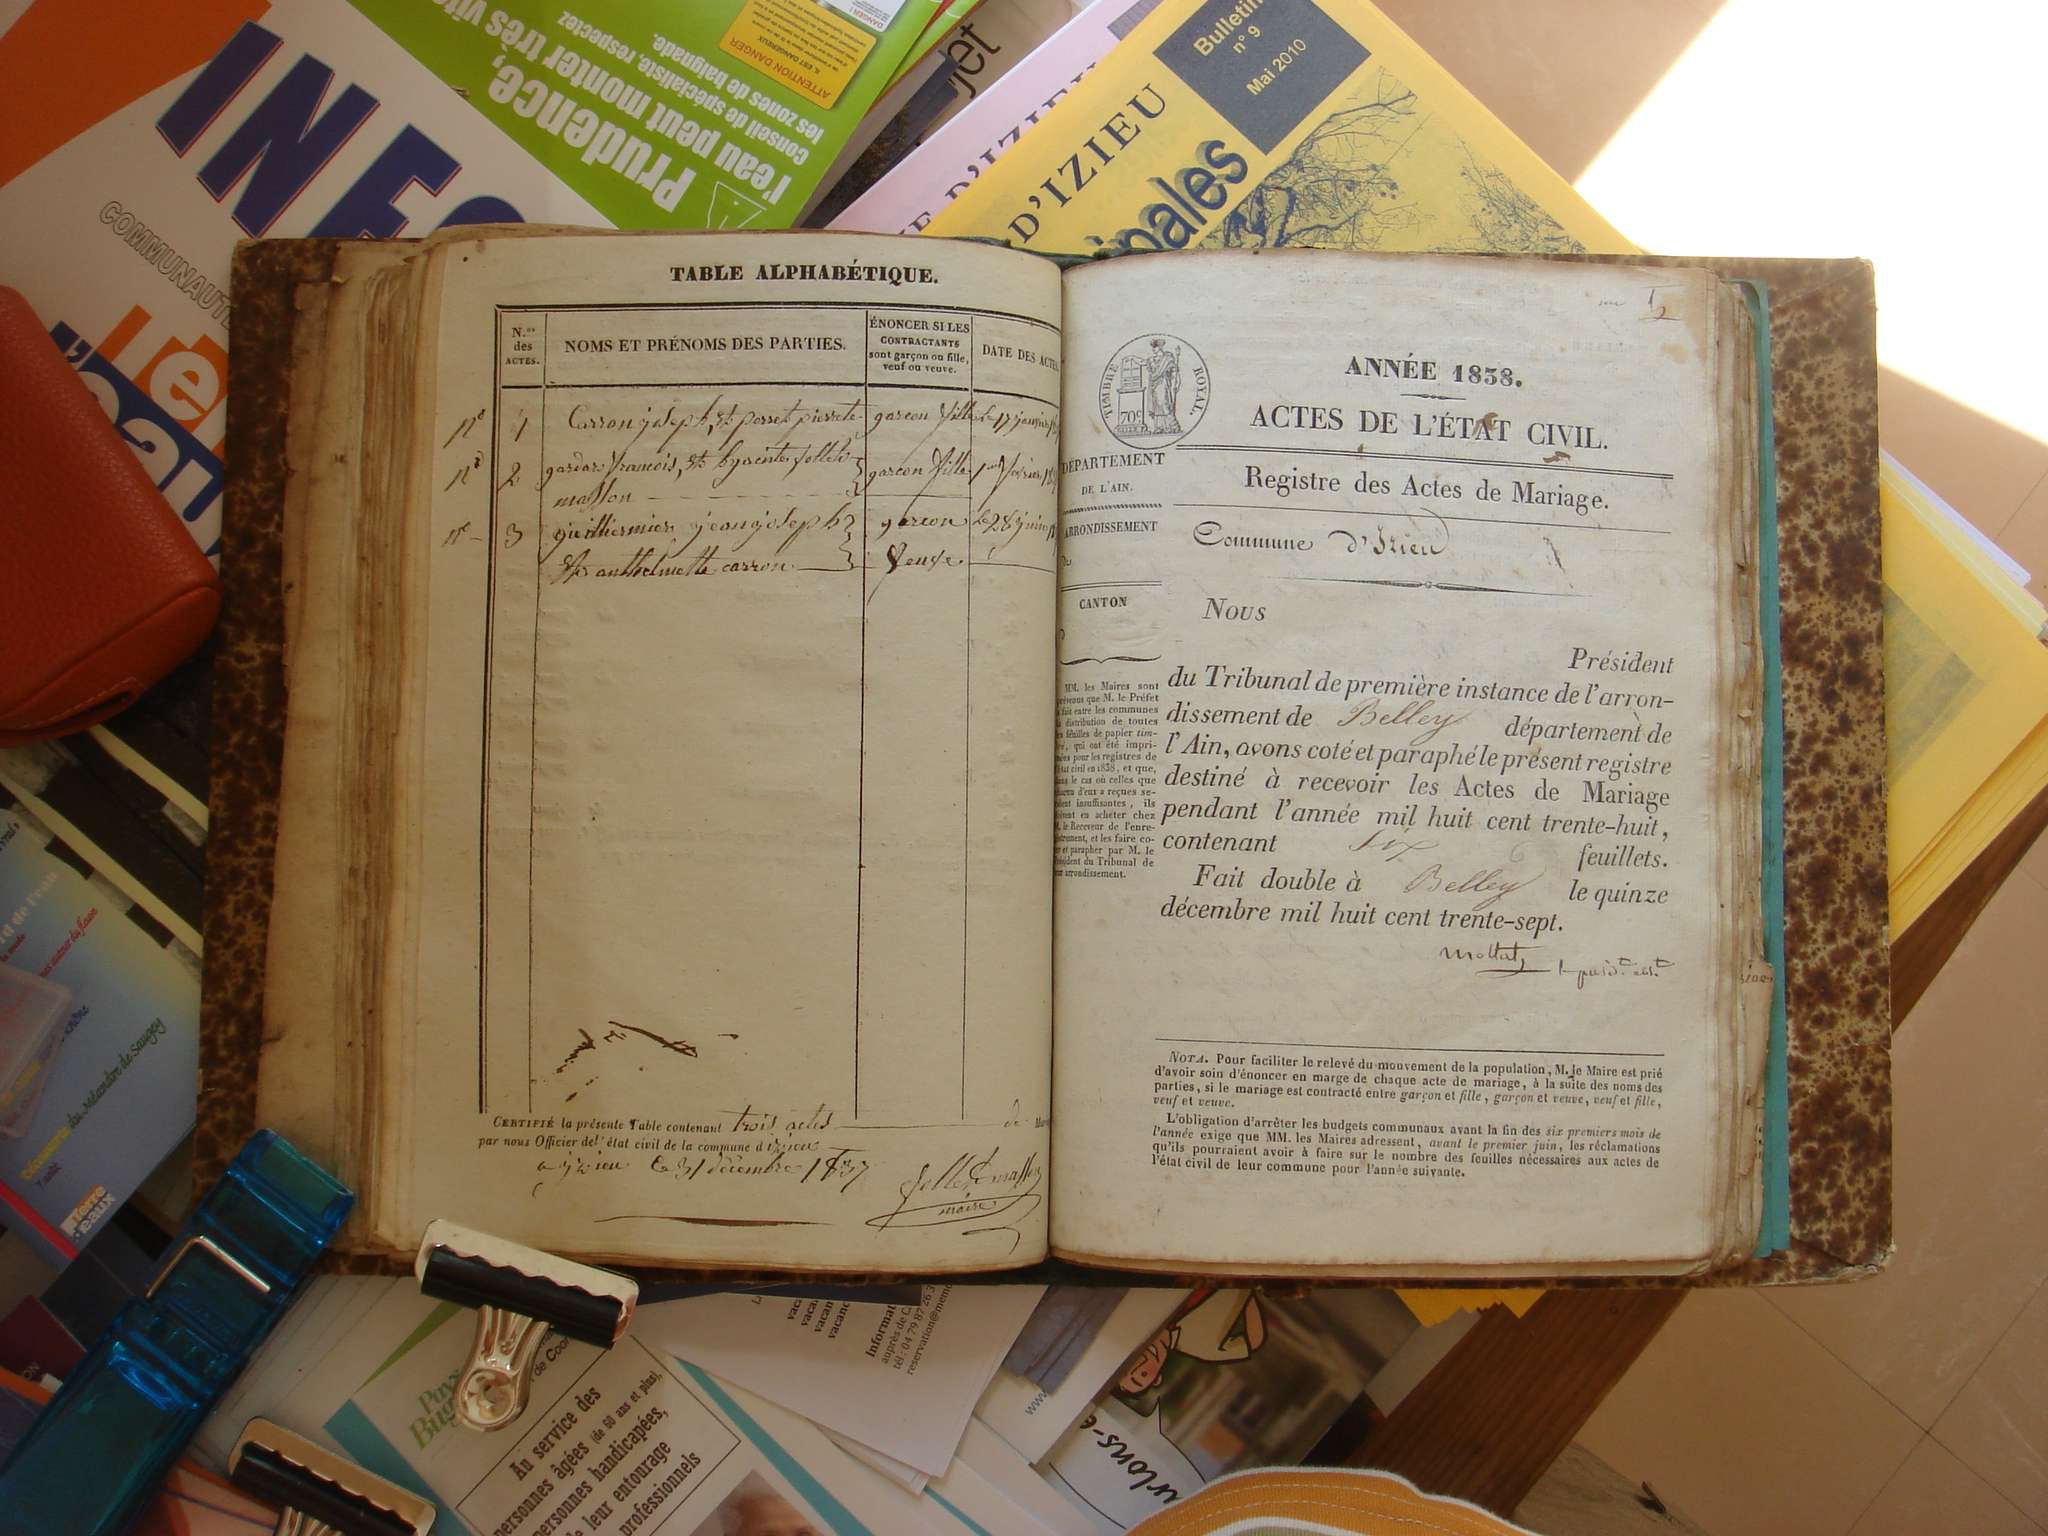 INFO
COMMUNAUTÉ
Prudence,
l'eau peut monter très vite
conseil de spécialiste, respectez
les zones de baignade.
ATTENTION DANGER
Bulletin
n° 9
Mai 2010
D'IZIEU
D'IZIEU
ipales
TABLE ALPHABÉTIQUE.
N.os des ACTES.
NOMS ET PRÉNOMS DES PARTIES.
ÉNONCER SI LES CONTRACTANTS sont garçon ou fille, veuf ou veuve.
DATE DES ACTES
n° 1 Carron joseph, et perret pierrete garcon fille le 17 janvier
n° 2 francois, et hyacinte follet garcon fille 1er
masson
n° 3 guilliermier jean joseph garcon le 28 juin
et anthelmette carron veuve
CERTIFIÉ la présente Table contenant trois actes de
par nous Officier de l'état civil de la commune d izieu
a izieu le 31 décembre 1837
maire
TIMBRE ROYAL.
70c
ANNÉE 1838.
ACTES DE L'ÉTAT CIVIL.
DÉPARTEMENT
DE L'AIN.
Registre des Actes de Mariage.
ARRONDISSEMENT
Commune d'Izieu
CANTON
Nous
Président
du Tribunal de première instance de l'arron-
dissement de Belley département de
l'Ain, avons coté et paraphé le présent registre
destiné à recevoir les Actes de Mariage
pendant l'année mil huit cent trente-huit,
contenant Six 6 feuillets.
Fait double à Belley le quinze
décembre mil huit cent trente-sept.
MM. les Maires sont
prévenus que M. le Préfet
a fait entre les communes
la distribution de toutes
les feuilles de papier tim-
bré, qui ont été impri-
mées pour les registres de
l'état civil en 1838, et que,
dans le cas où celles que
chacun d'eux a reçues se-
raient insuffisantes, ils
doivent en acheter chez
M. le Receveur de l'enre-
gistrement, et les faire co-
ter et parapher par M. le
Président du Tribunal de
leur arrondissement.
NOTA. Pour faciliter le relevé du mouvement de la population, M. le Maire est prié
d'avoir soin d'énoncer en marge de chaque acte de mariage, à la suite des noms des
parties, si le mariage est contracté entre garçon et fille, garçon et veuve, veuf et fille,
veuf et veuve.
L'obligation d'arrêter les budgets communaux avant la fin des six premiers mois de
l'année exige que MM. les Maires adressent, avant le premier juin, les réclamations
qu'ils pourraient avoir à faire sur le nombre des feuilles nécessaires aux actes de
l'état civil de leur commune pour l'année suivante.
Terre
d'eaux
Au service des
personnes âgées (de 60 ans et plus),
personnes handicapées,
de leur entourage
professionnels
auprès de
tél : 04 79 87 26 3